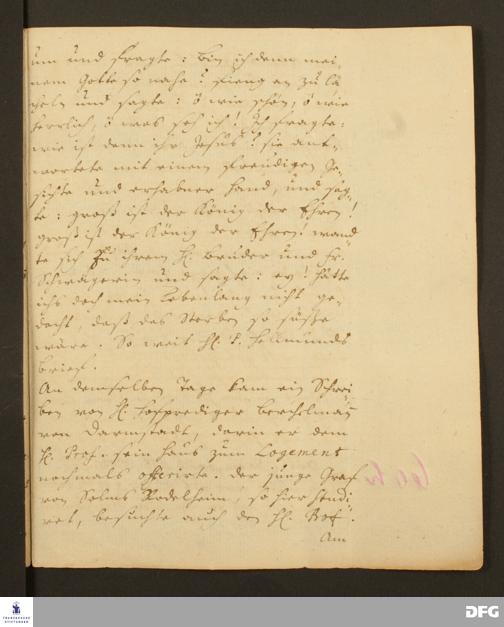 um und fragte: bin ich denn mei-
nem Gotte so nahe? fieng an zu lä-
cheln und sagte: ô wie schön, ô wie
herrlich, ô was seh ich! Ich fragte:
wie ist denn ihr Jesus? sie ant-
wortete mit einem freudigen Ge-
sichte und erhabner Hand, und sag-
te: groß ist der König der Ehren!
groß ist der König der Ehren! wand-
te sich zu ihrem H. Bruder und Fr.
Schwägerin und sagte: ey! hätte
ichs doch mein Lebenlang nicht ge-
dacht, daß das Sterben so süsse
wäre. So weit H. P. Hellmunds
brief.
An demselben Tage kam ein Schrei-
ben von H. Hofprediger Berchelmañ
von Darmstadt, darin er dem
H. Prof. sein Haus zum Logement
nochmals offerirte. Der junge Graf
von Solms Rödelheim, so hier studi-
ret, besuchte auch den H. Prof.
Am
FRANCKESCHE
STIFTUNGEN
DFG